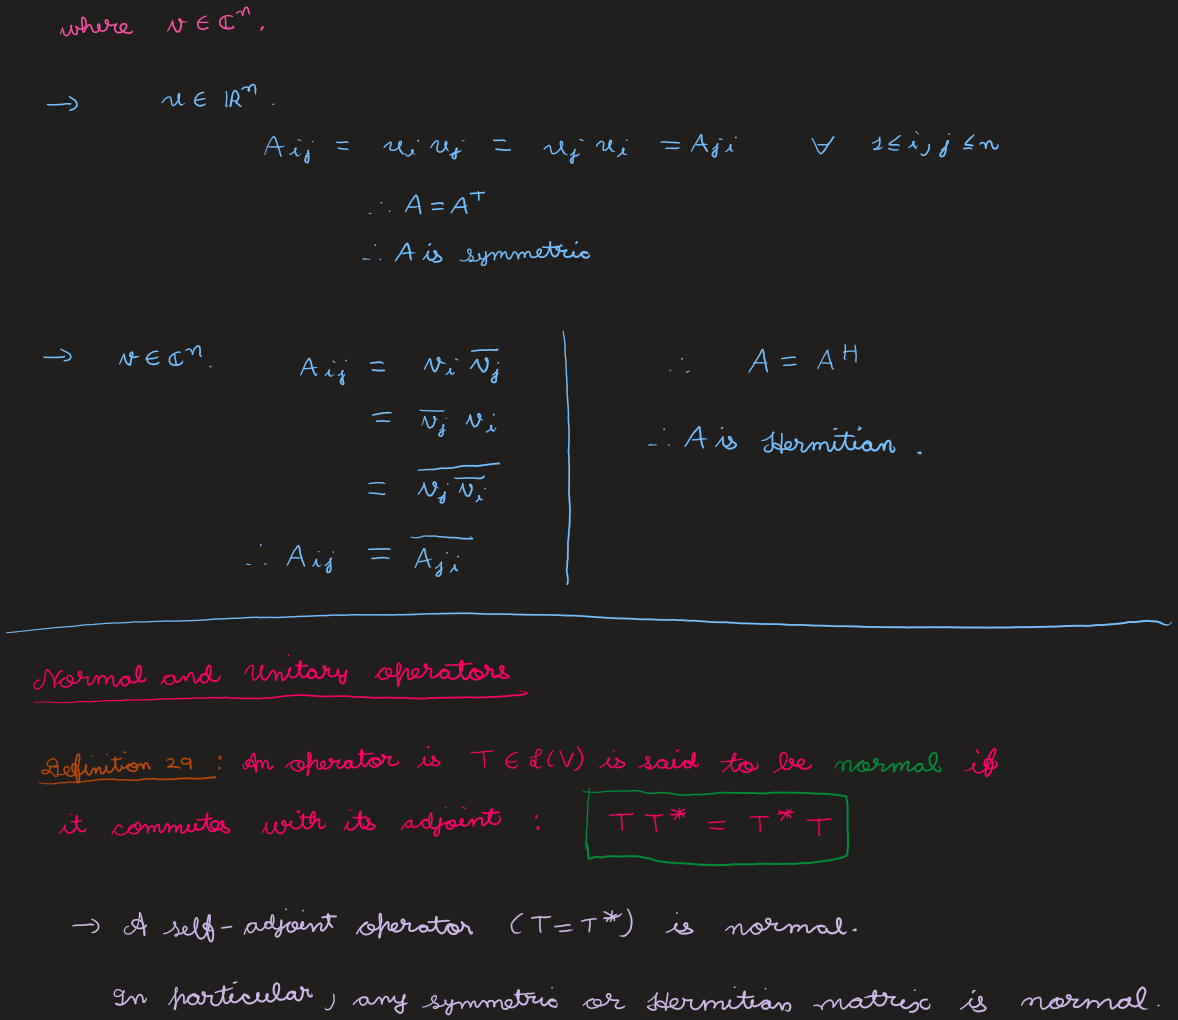 where v ∈ ℂⁿ.
→ u ∈ ℝⁿ.
A_ij = u_i u_j = u_j u_i = A_ji ∀ 1 ≤ i, j ≤ n
∴ A = Aᵀ
∴ A is symmetric
→ v ∈ ℂⁿ. A_ij = v_i \overline{v_j}
= \overline{v_j} v_i
= \overline{v_j \overline{v_i}}
∴ A_ij = \overline{A_ji}
∴ A = Aᴴ
∴ A is Hermitian.
Normal and Unitary operators
Definition 29 : An operator is T ∈ ℒ(V) is said to be normal if
it commutes with its adjoint : T T* = T* T
→ A self-adjoint operator (T = T*) is normal.
In particular, any symmetric or Hermitian matrix is normal.